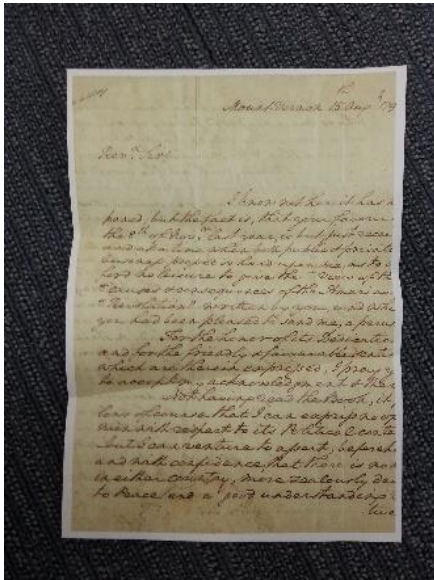 Mount Vernon 15th Augt 179
Revd Sir,
I know not how it has h
pened, but the fact is, that your favour
the 8th of Novr last year, is but just recei
and at a time when both public & private
business pressed so hard upon me, as to a
ford no leisure to give the "View of the
"causes & consequences of the American
"Revolution" written by you, and whi
you had been pleased to send me, a perus
For the honor of its Dedication
and for the friendly & favourable senti
which are therein expressed, I pray y
to accept my acknowledgment & than
Not having read the Book, it f
lows of course that I can express no opi
nion with respect to its Political conte
but I can venture to assert, beforeh
and with confidence, that there is no m
in either country, more zealously de
to Peace and a good understanding b
twe